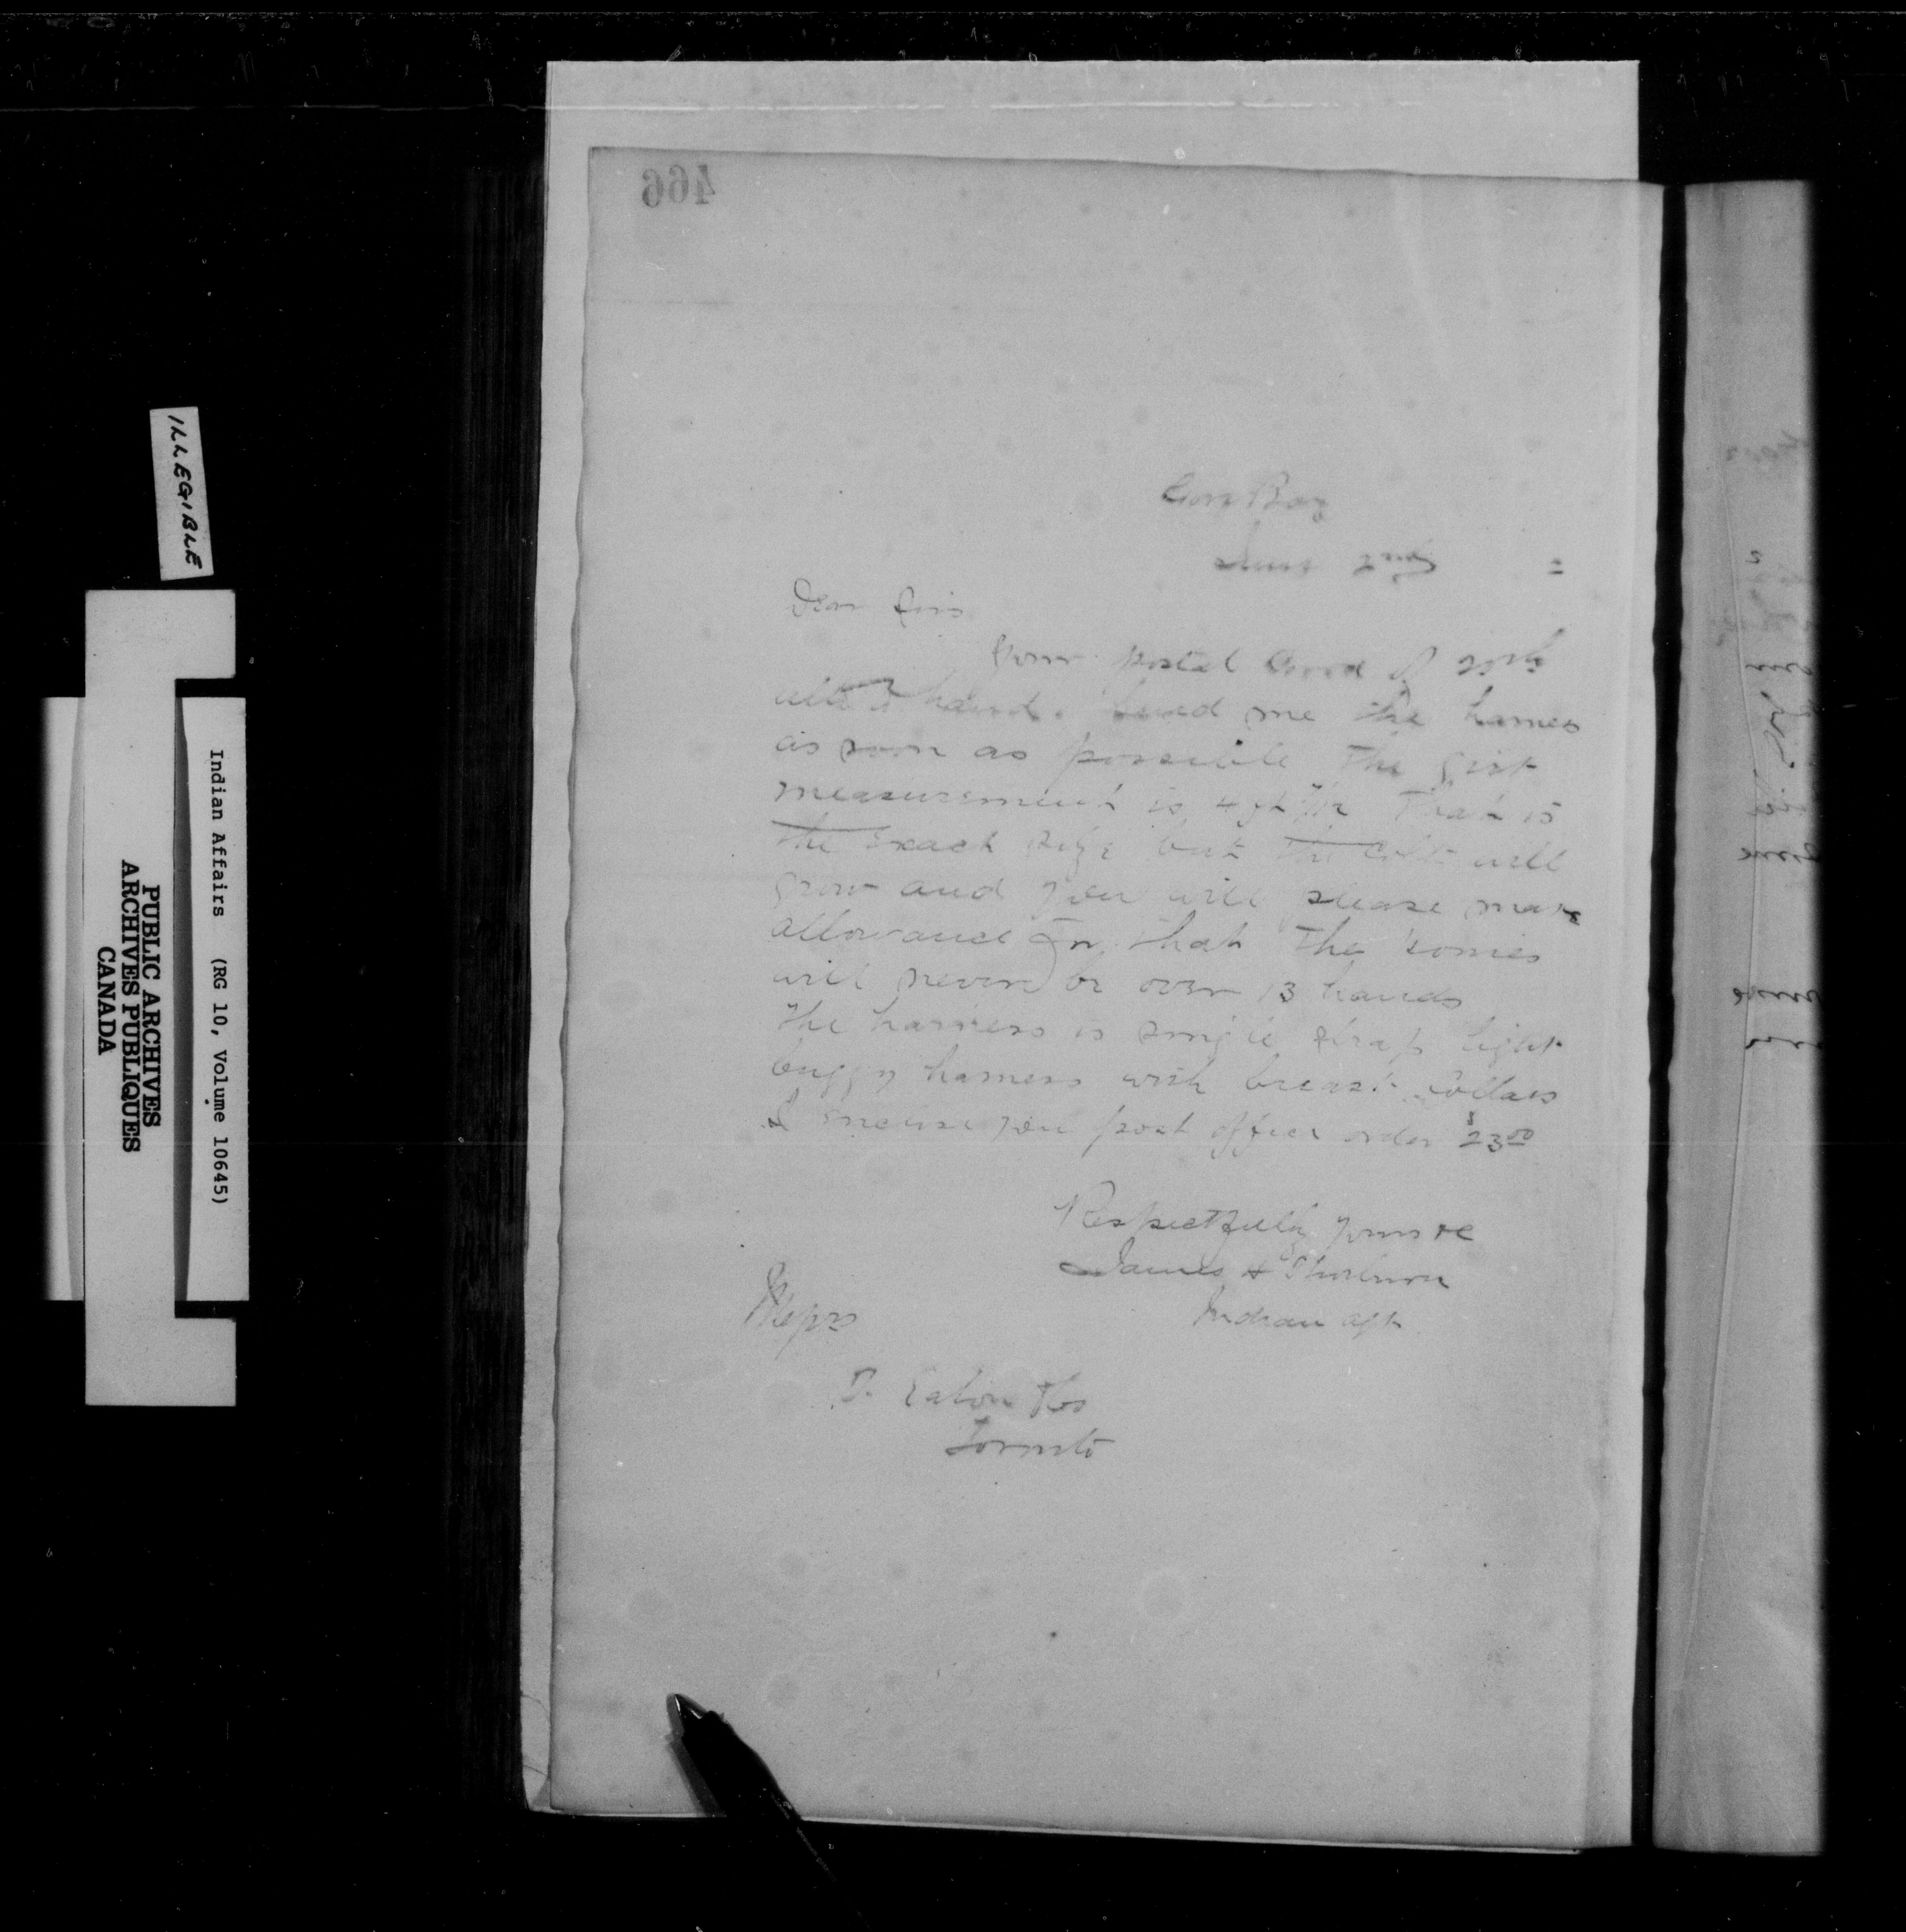 466
Gore Bay
June 2nd
Dear Sirs
Your postal Card of
ulto to hand. Send me the harness
as soon as possible The girt
measurement is 4 ft That is
the exact size but the colt will
grow and you will please make
allowance for that The ponies
will never be over 13 hands
The harness is single strap light
buggy harness with breast Collars
I enclose you post office order $23.00
Respectfully yours &c
James H Thorburn
Indian agt
Messrs
T. Eaton & Co
Toronto
ILLEGIBLE
Indian Affairs (RG 10, Volume 10645)
PUBLIC ARCHIVES
ARCHIVES PUBLIQUES
CANADA